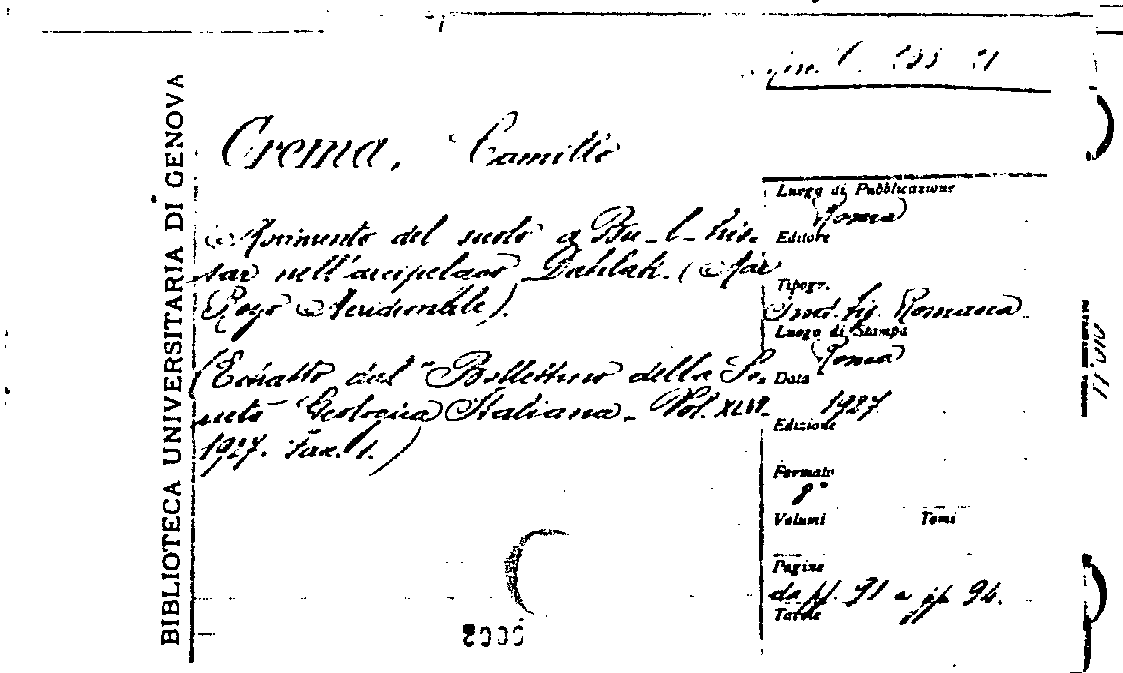 BIBLIOTECA UNIVERSITARIA DI GENOVA
Crema, Camillo
Movimento del suolo a Bu-l-his-
sar nell'arcipelago Dahlak. (Mar
Rosso Meridionale).
(Estratto dal "Bollettino della So-
cietà Geologica Italiana. Vol. XLVI.
1927. Fasc. 1.)
Luogo di Pubblicazione
Roma
Editore
Tipogr.
Ind. tip. Romana.
Luogo di Stampa
Roma
Data
1927
Edizione
Formato
8°
Volumi Tomi
Pagine
da pp. 91 a pp. 94.
Tavole